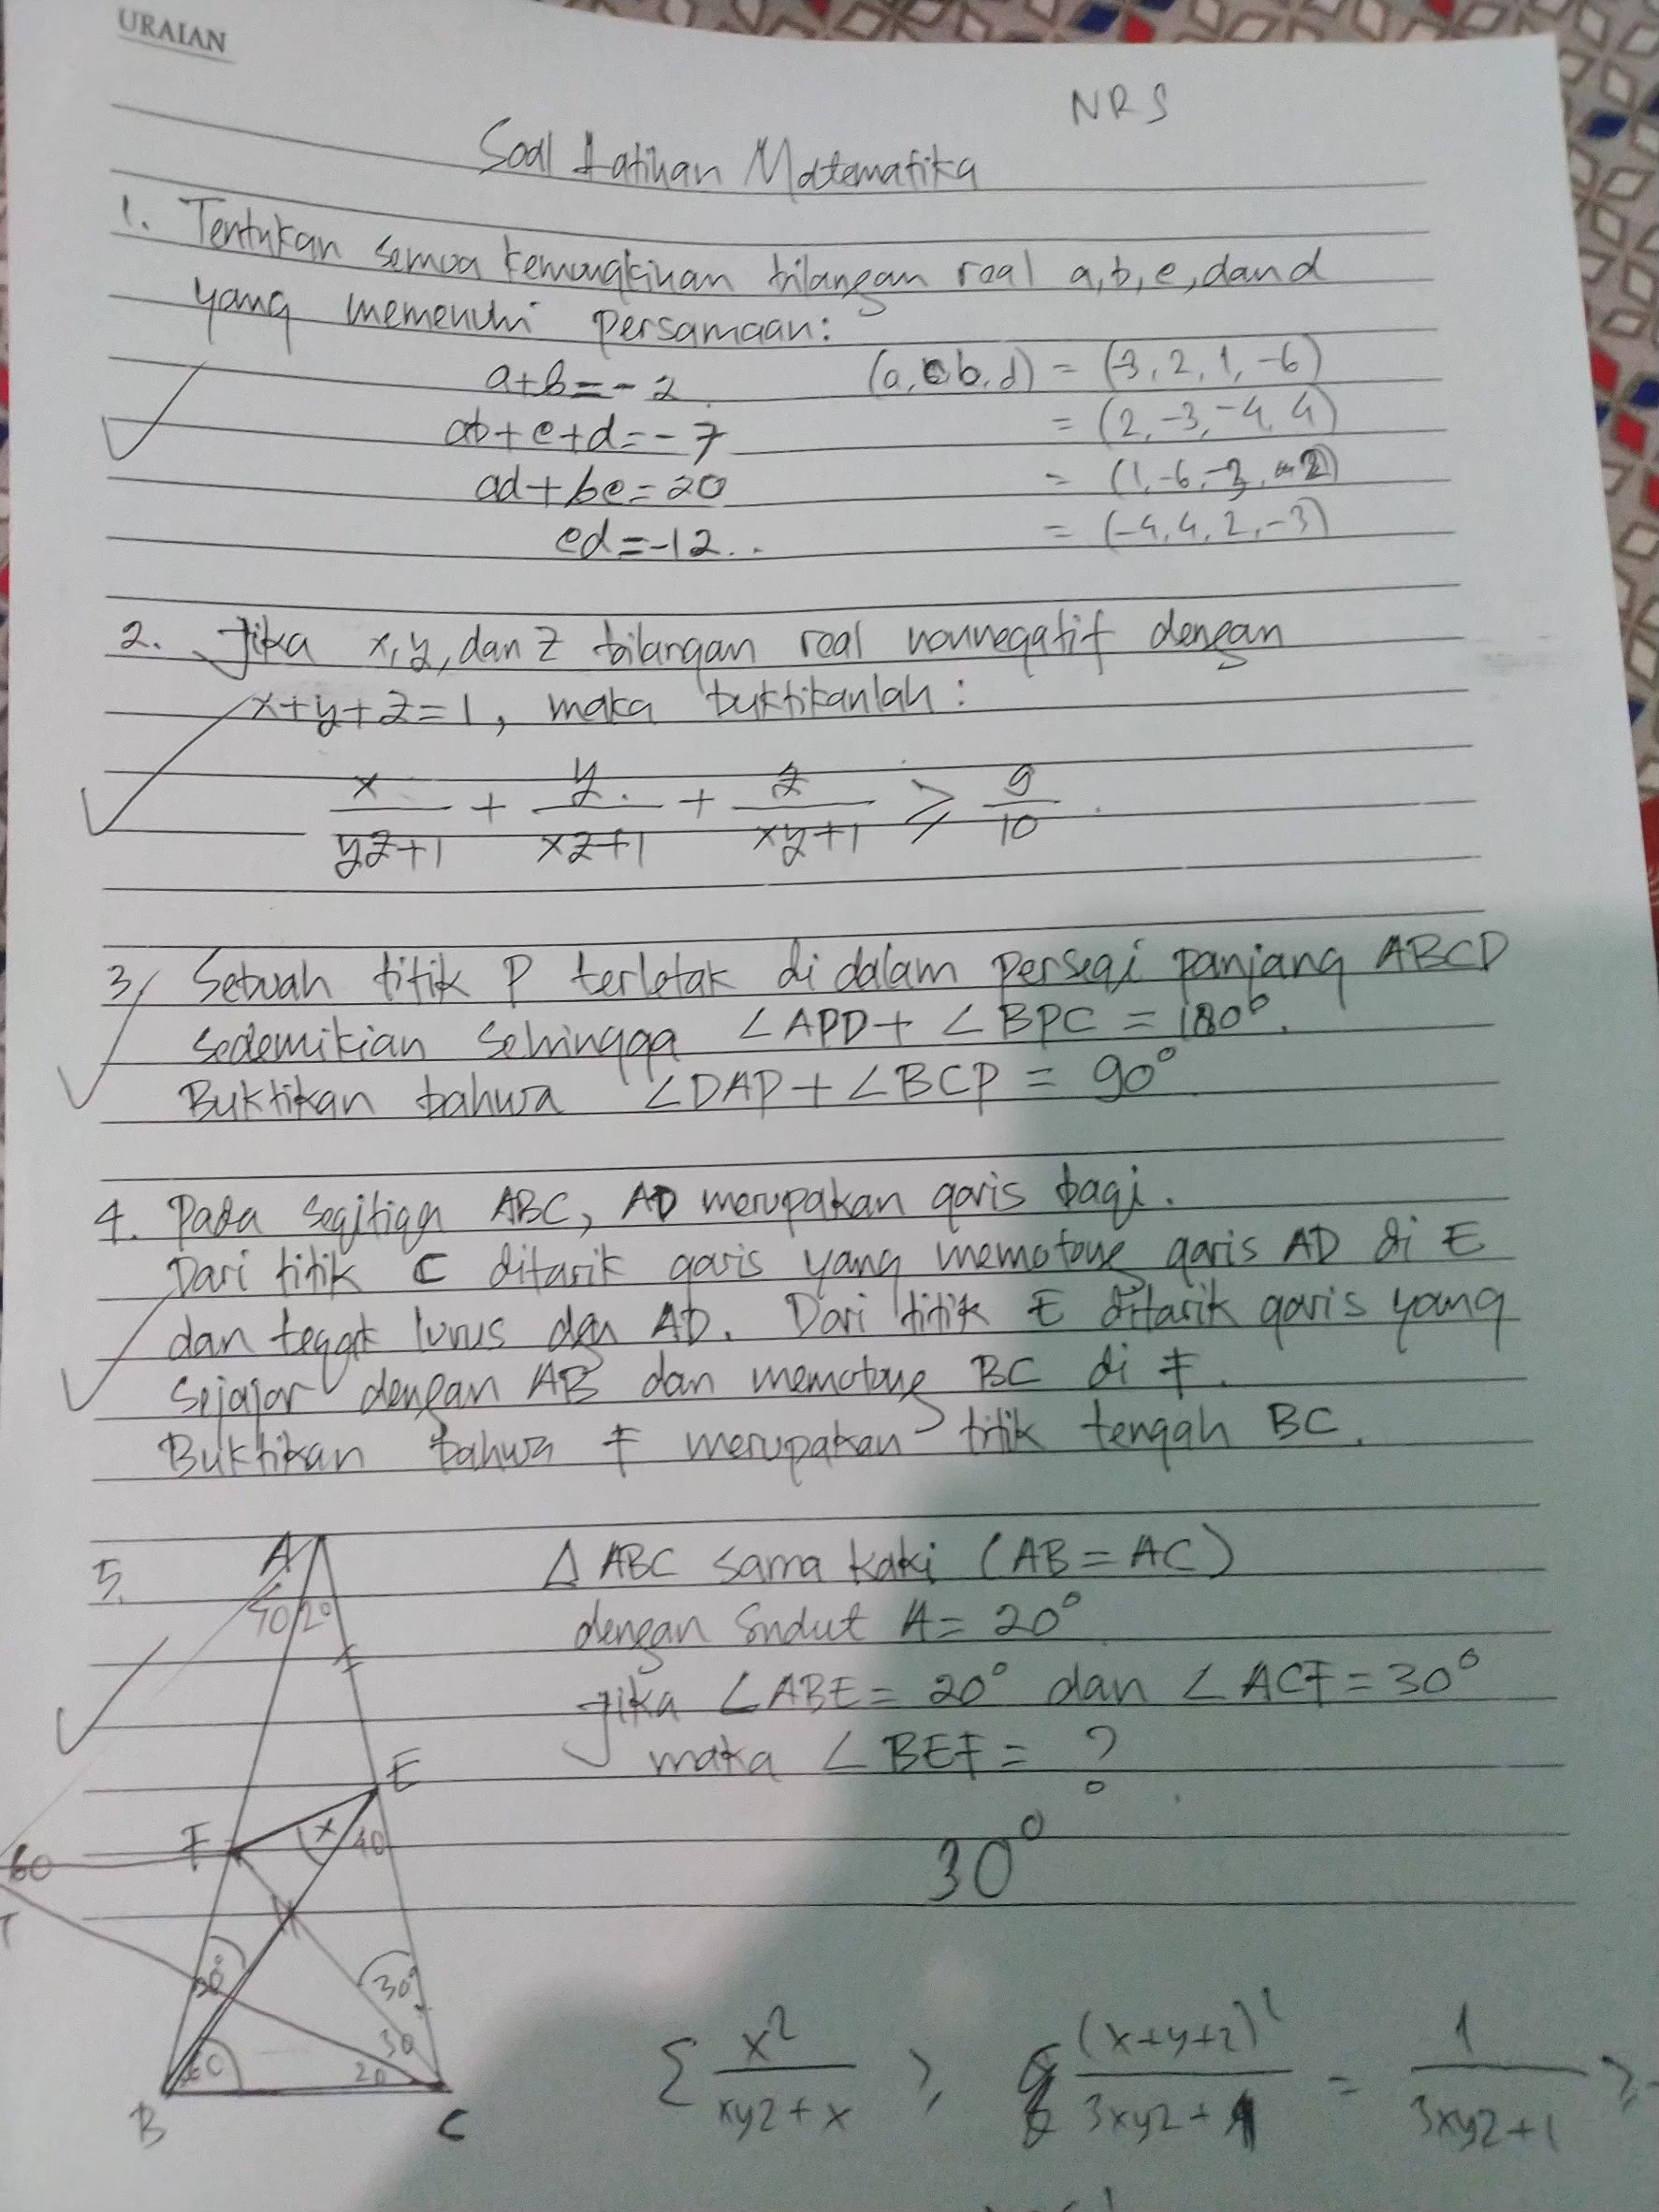 URAIAN
NRS
Soal Latihan Matematika
1. Tentukan semua kemungkinan bilangan real a, b, c, dan d
yang memenuhi persamaan:
a+b=-2 (a, c, b, d) = (-3, 2, 1, -6)
ab+c+d=-7 = (2, -3, -4, 4)
ad+bc=20 = (1, -6, -3, 2)
cd=-12.. = (-4, 4, 2, -3)
2. Jika x, y, dan z bilangan real nonnegatif dengan
x+y+z=1, maka buktikanlah:
x/(yz+1) + y/(xz+1) + z/(xy+1) ≥ 9/10.
3. Sebuah titik P terletak di dalam persegi panjang ABCD
sedemikian sehingga ∠APD + ∠BPC = 180°.
Buktikan bahwa ∠DAP + ∠BCP = 90°
4. Pada segitiga ABC, AD merupakan garis bagi.
Dari titik C ditarik garis yang memotong garis AD di E
dan tegak lurus dgn AD. Dari titik E ditarik garis yang
sejajar dengan AB dan memotong BC di F.
Buktikan bahwa F merupakan titik tengah BC.
5. A
40 20
△ ABC sama kaki (AB = AC)
dengan sudut A = 20°
Jika ∠ABE = 20° dan ∠ACF = 30°
maka ∠BEF = ?
E
F x 40
60
30°
T
20° 30°
30
60 20
B C
Σ x²/(xyz+x) ≥ (x+y+z)²/(3xyz+1) = 1/(3xyz+1) ≥